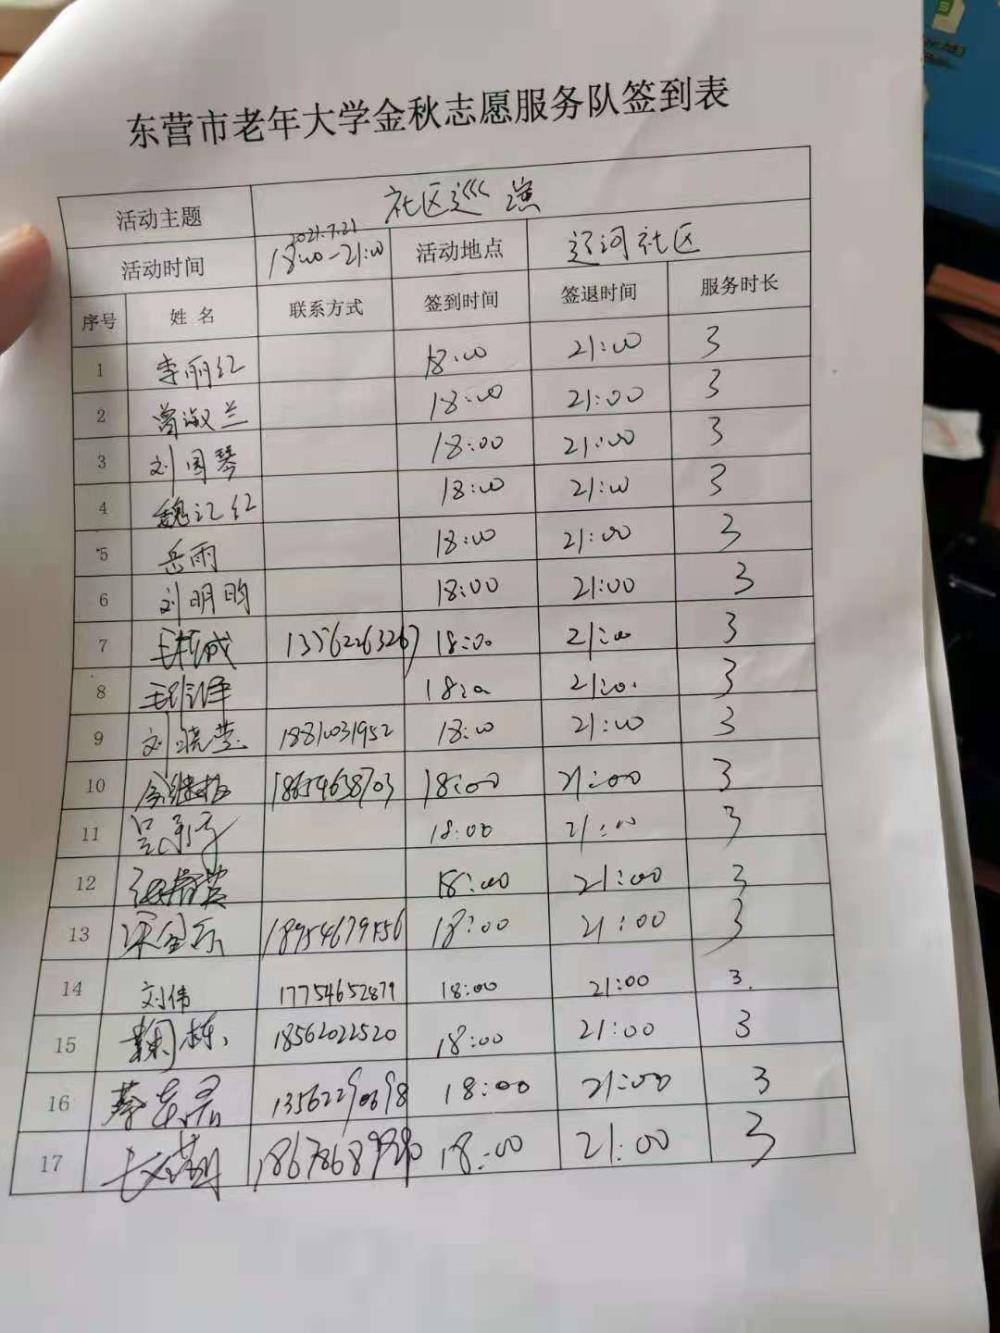 东营市老年大学金秋志愿服务队签到表
活动主题 社区巡演
活动时间 2021.7.21 18:00-21:00 活动地点 辽河社区
序号 姓名 联系方式 签到时间 签退时间 服务时长
1 李丽红 18:00 21:00 3
2 曾淑兰 18:00 21:00 3
3 刘国琴 18:00 21:00 3
4 魏记红 18:00 21:00 3
5 岳雨 18:00 21:00 3
6 刘明昀 18:00 21:00 3
7 13562263267 18:00 21:00 3
8 18:00 21:00 3
9 刘晓莹 18:00 21:00 3
10 18654638703 18:00 21:00 3
11 18:00 21:00 3
12 18:00 21:00 3
13 18954679556 18:00 21:00 3
14 刘伟 17754652879 18:00 21:00 3
15 鞠栋 18562022520 18:00 21:00 3
16 18:00 21:00 3
17 18:00 21:00 3